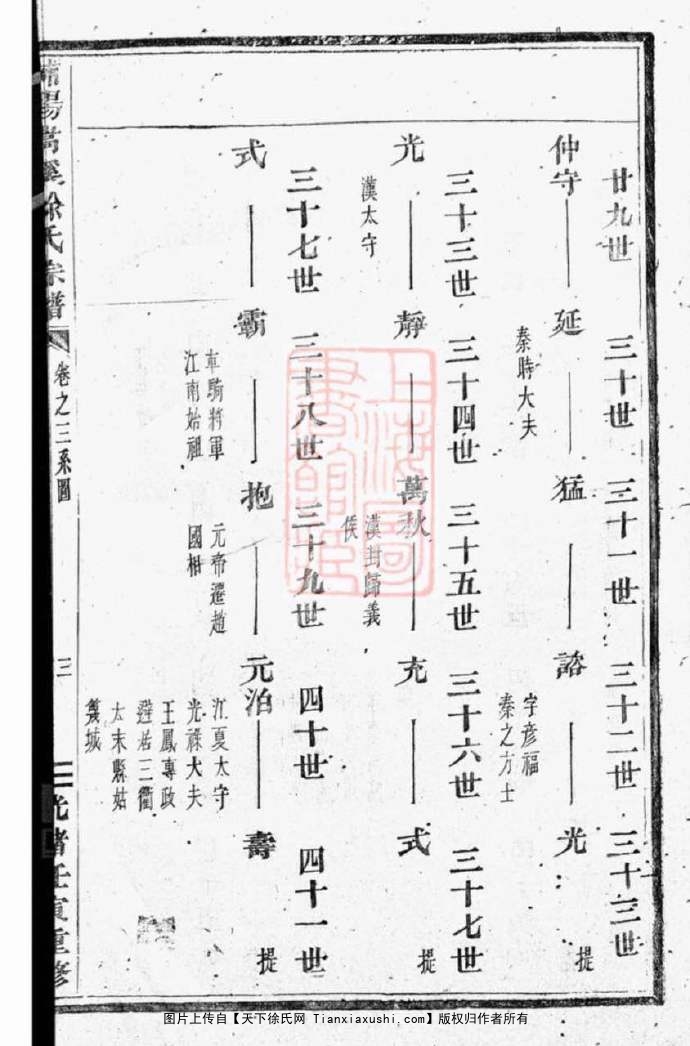 廿九世 三十世 三十一世 三十二世 三十三世
仲守 延 猛 諮 光 提
秦時大夫
字彥福
秦之方士
三十三世 三十四世 三十五世 三十六世 三十七世
光 靜 萬秋 充 式 提
漢太守
漢封歸義
侯
三十七世 三十八世 三十九世 四十世 四十一世
式 霸 抱 元洎 壽 提
車騎將軍
江南始祖
元帝遷趙
國相
江夏太守
光祿大夫
王鳳專政
避居三衢
太末縣姑
篾城
嵩溪徐氏宗譜
卷之三系圖
三
光緒壬寅重修
上海圖書館藏
图片上传自【天下徐氏网 Tianxiaxushi.com】版权归作者所有